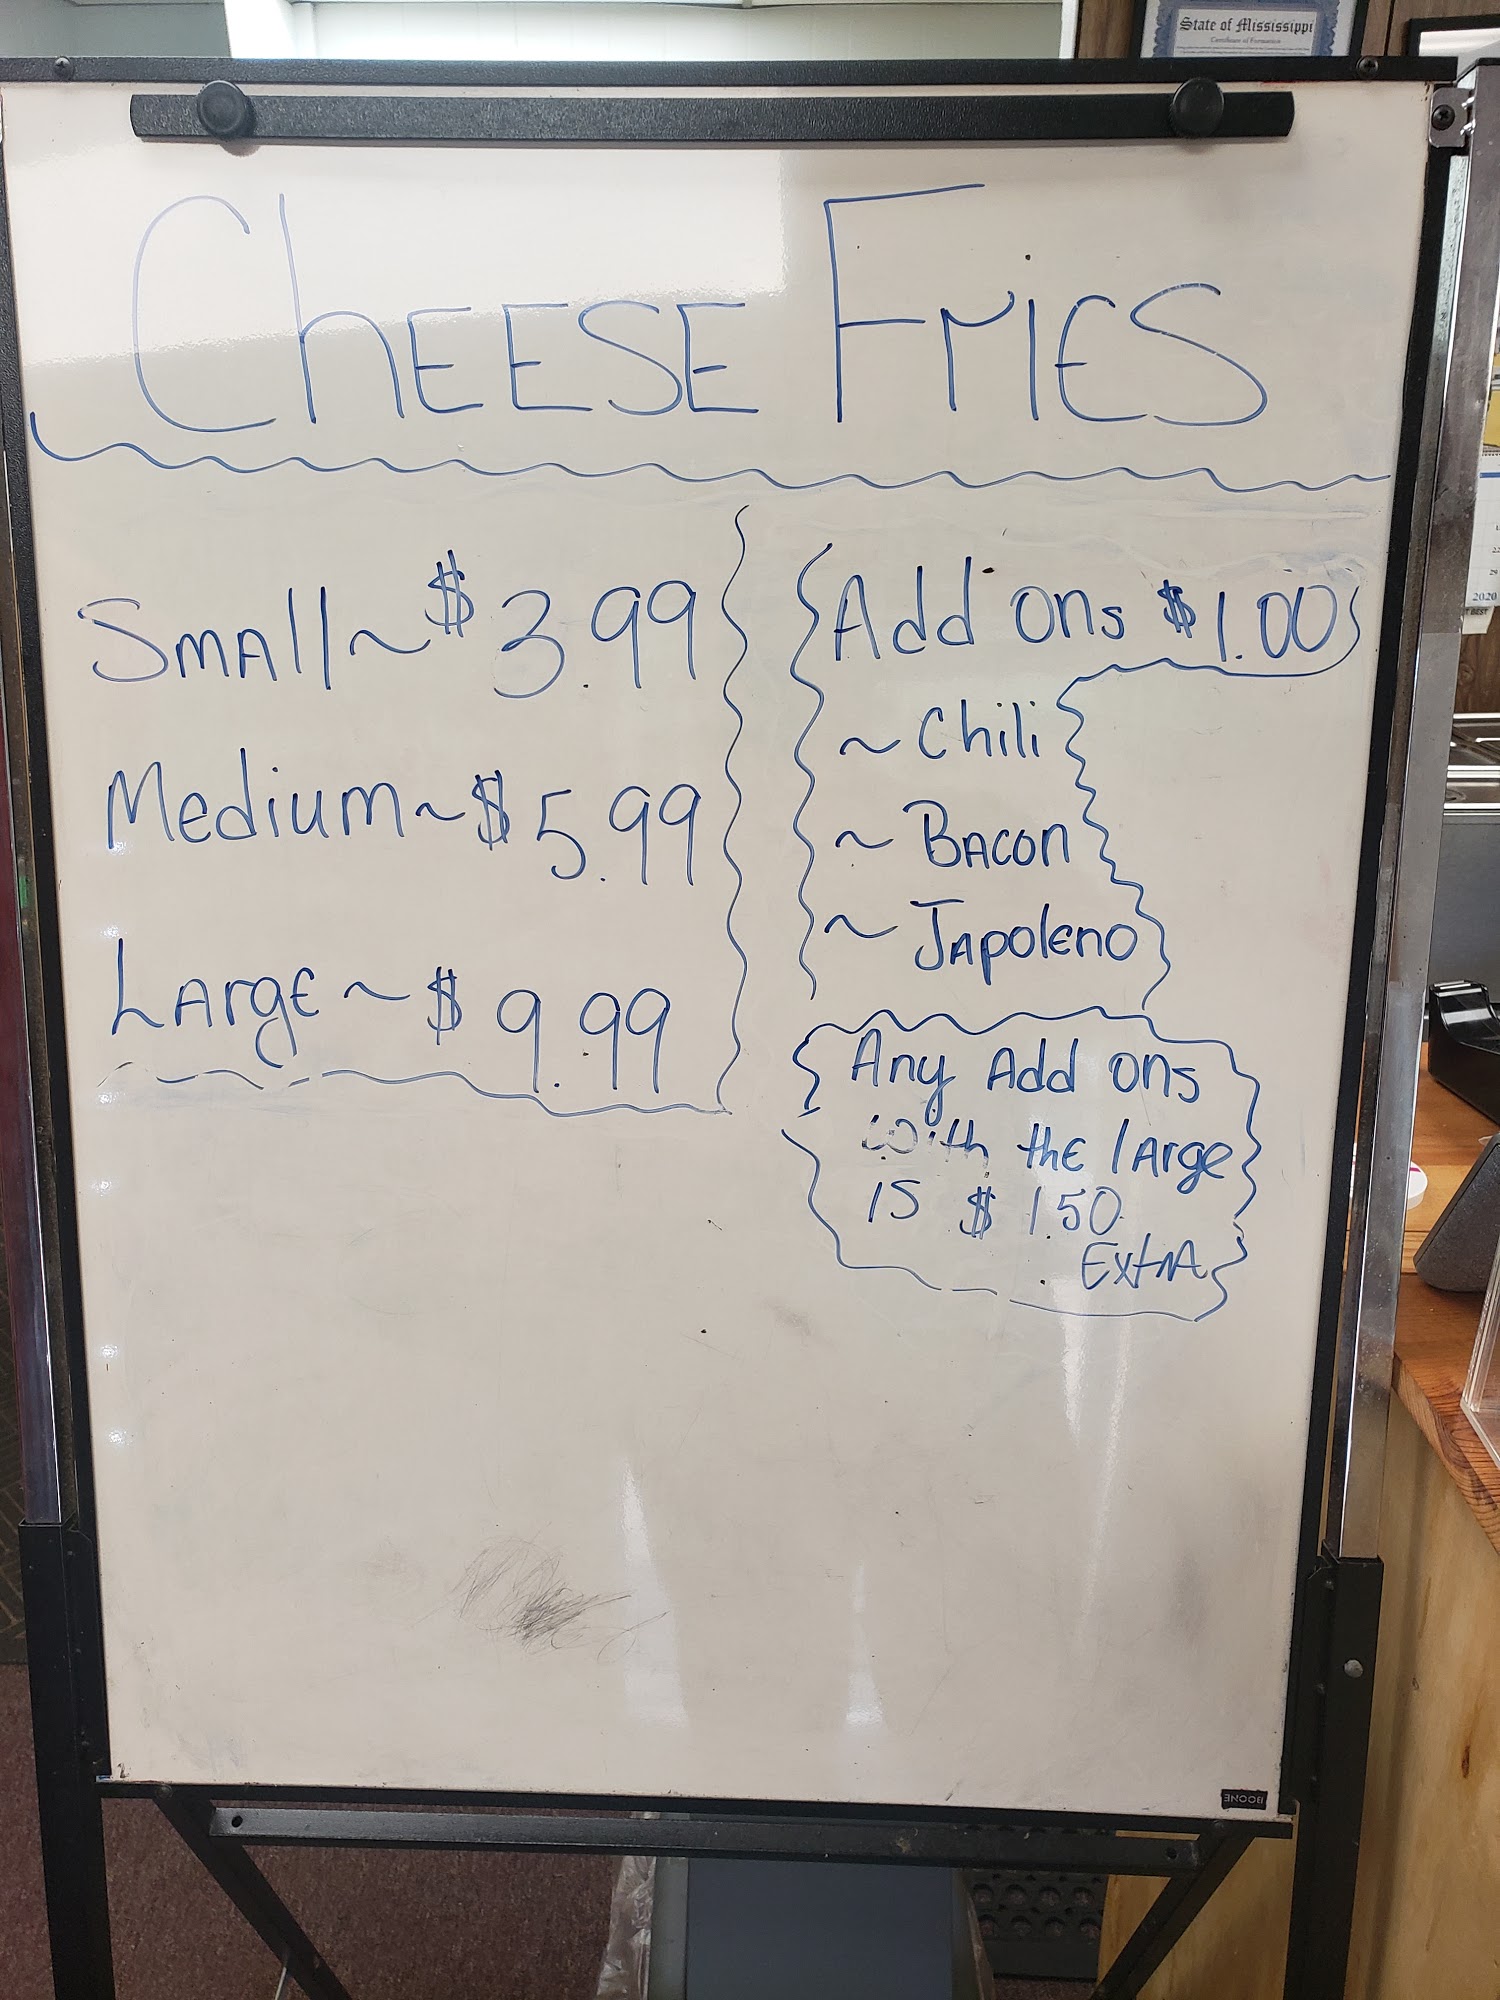 State of Mississippi
Certificate of Formation
CHEESE FRIES
Small ~ $3.99
Medium ~ $5.99
Large ~ $9.99
Add ons $1.00
~ Chili
~ Bacon
~ Japoleno
Any Add ons
with the large
is $1.50
Extra
2020
BOONE